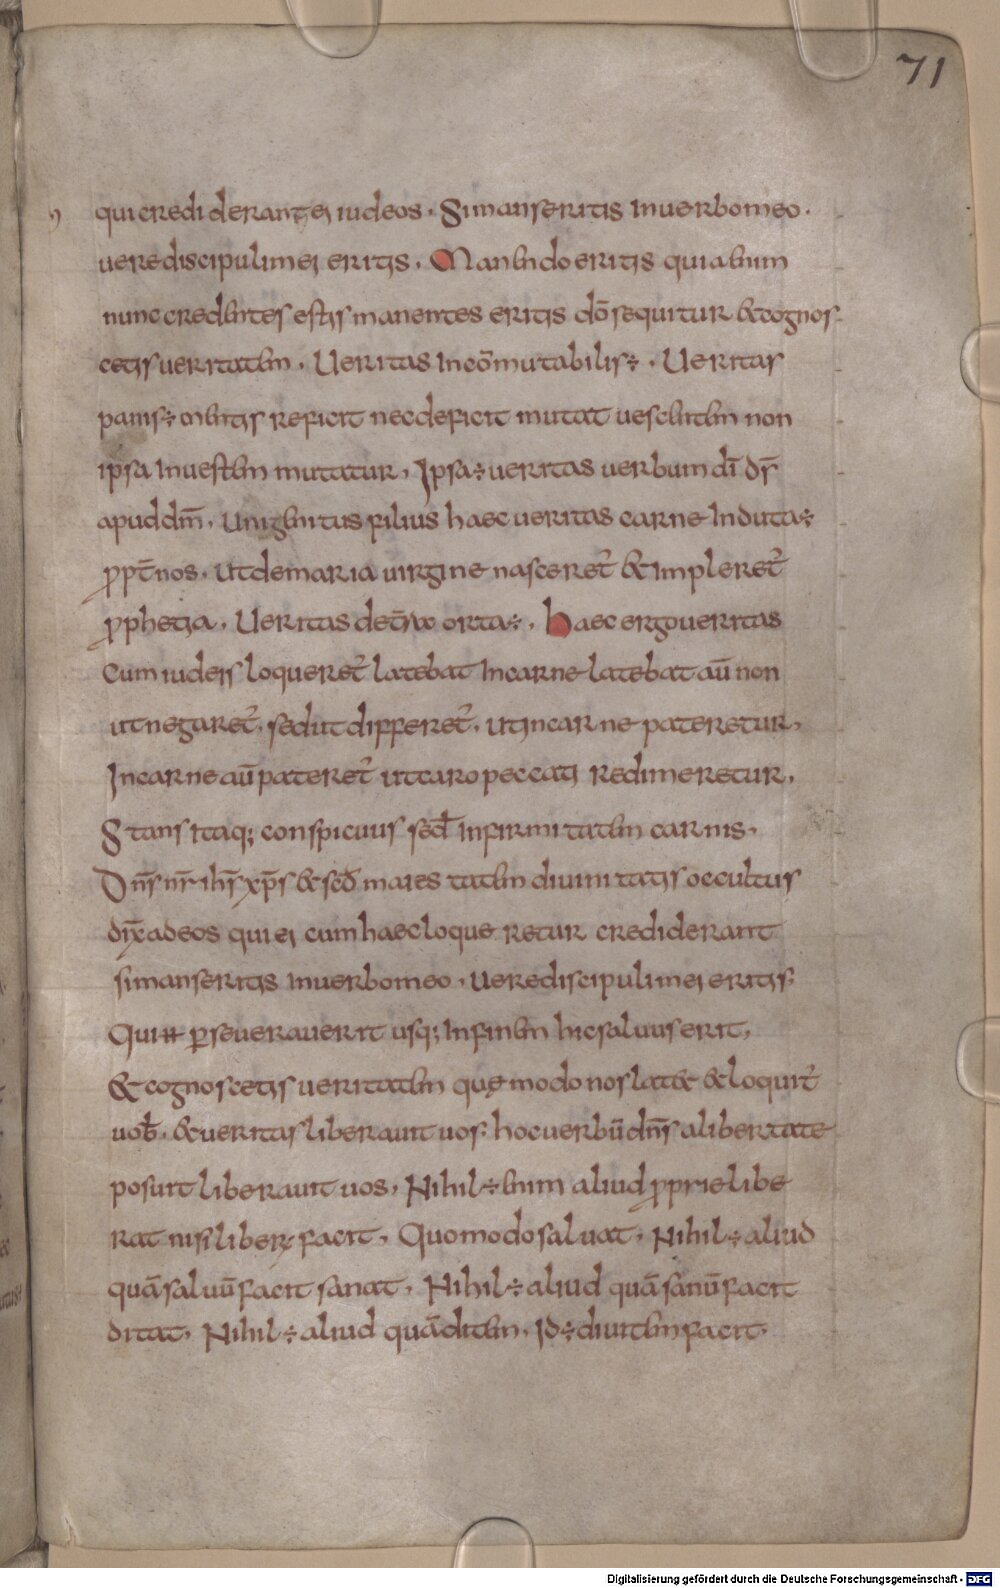 71
qui crediderant ei iudeos. Si manseritis in uerbo meo.
uere discipuli mei eritis. Manendo eritis quia enim
nunc credentes estis manentes eritis dō sequitur & cognos
cetis ueritatem. Ueritas incōmutabilis ÷. Ueritas
panis ÷ mentis reficit nec deficit mutat uescentem non
ipsa in uestem mutatur. Ipsa ÷ ueritas uerbum dī ds̄
apud dm̄. unigenitus filius haec ueritas carne induta ÷
ꝓpt̄ nos. ut de maria uirgine nasceret̄ & impleret̄
ꝓphetia. Ueritas de t̄ra orta ÷. Haec ergo ueritas
cum iudeis loqueret̄ latebat in carne latebat aū non
ut negaret̄. sed ut differet̄. ut in carne pateretur.
In carne aū pateret̄ ut caro peccati redimeretur.
Stans itaq; conspicuus secd̄ infirmitatem carnis.
Dn̄s nr̄ ih̄s xp̄s & scd̄ maiestatem diuinitatis occultus
dix̄ ad eos qui ei cum haec loqueretur crediderant
si manseritis in uerbo meo. uere discipuli mei eritis.
Qui ꝑseuerauerit usq; in finem hic saluus erit.
& cognoscetis ueritatem quę modo nos lat& & loquit̄
uob̄. & ueritas liberauit uos. hoc uerbū dn̄s a libertate
posuit liberauit uos. Nihil ÷ enim aliud ꝓprie libe
rat nisi liberū facit. Quomodo saluat. Nihil ÷ aliud
quā saluū facit sanat. Nihil ÷ aliud quā sanū facit
ditat. Nihil ÷ aliud quā ditem. id ÷ diuitem facit.
Digitalisierung gefördert durch die Deutsche Forschungsgemeinschaft - DFG